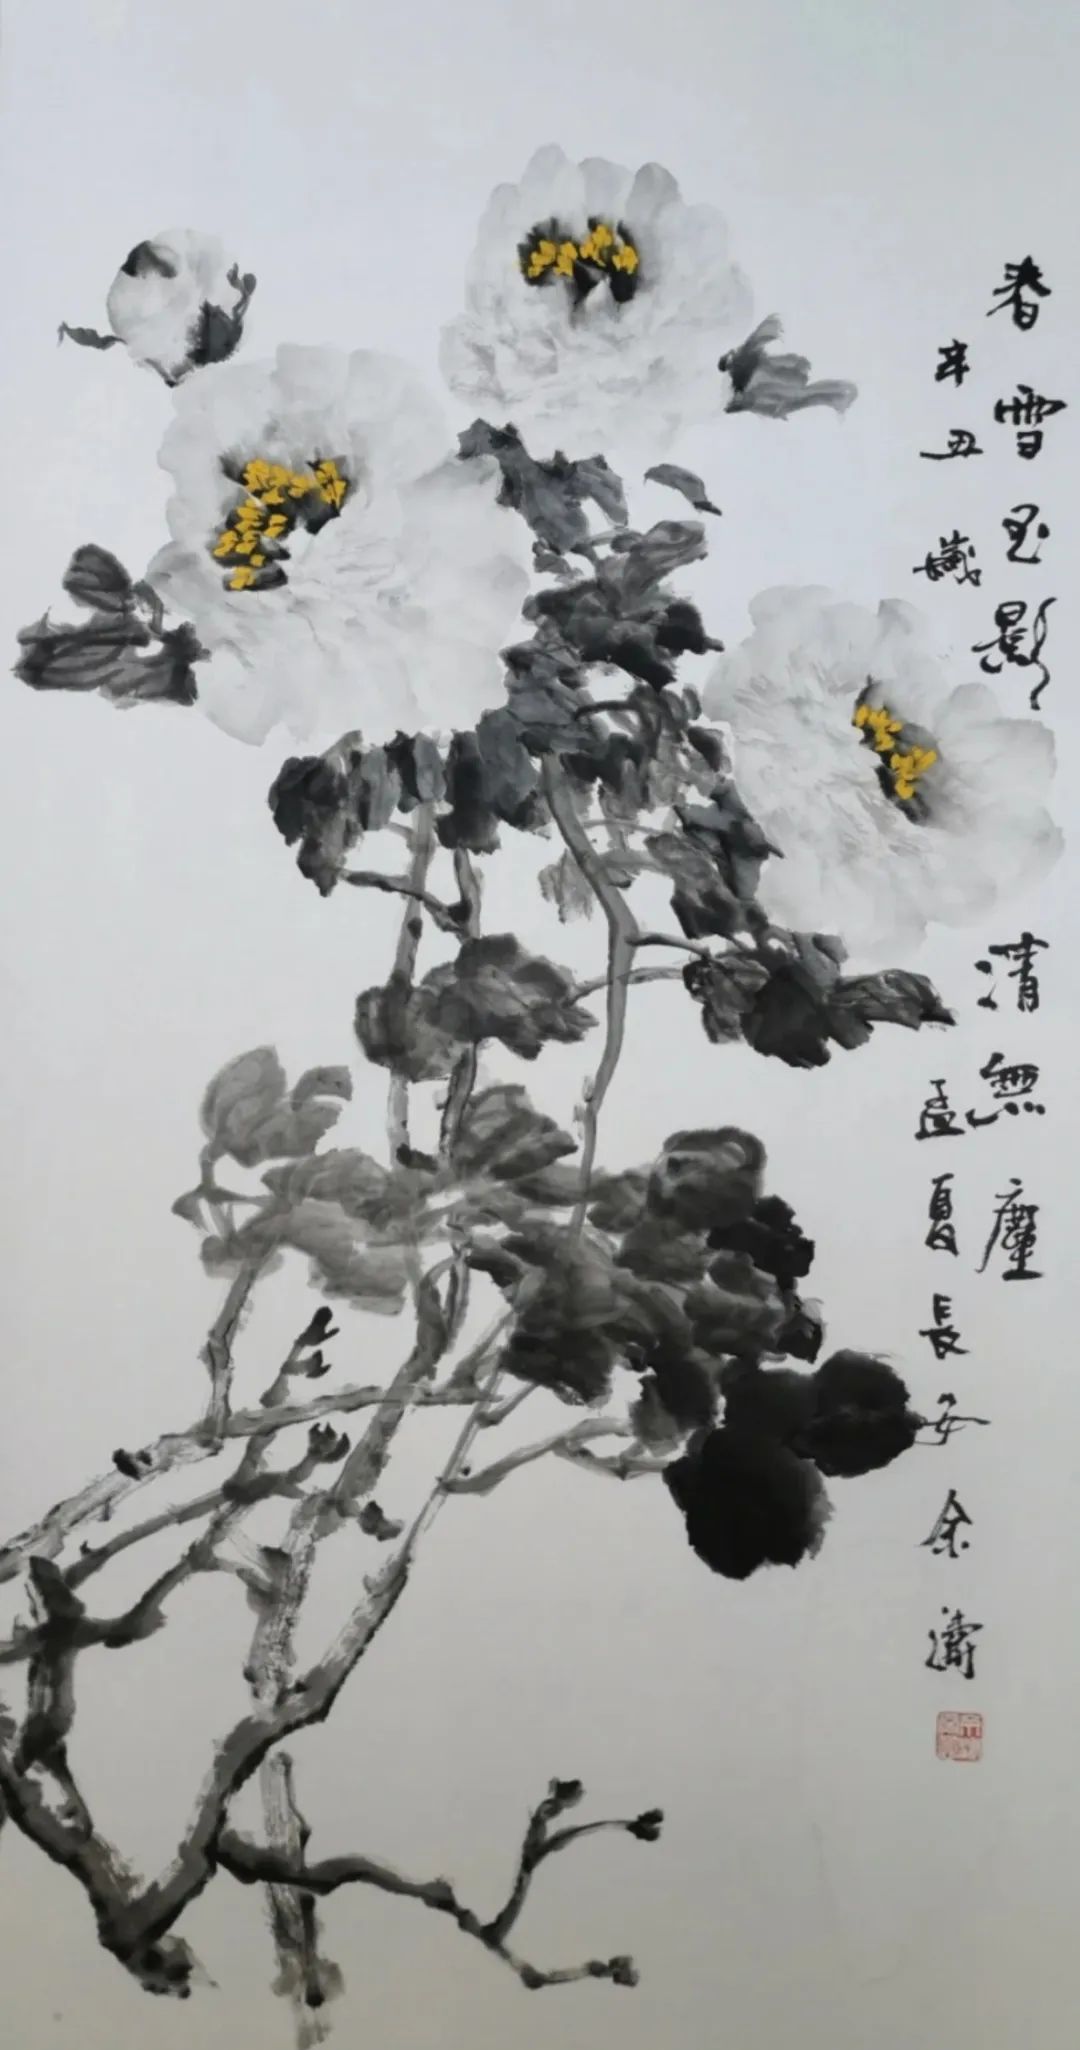 春雪玉影清無塵
辛丑歲孟夏長安余濤